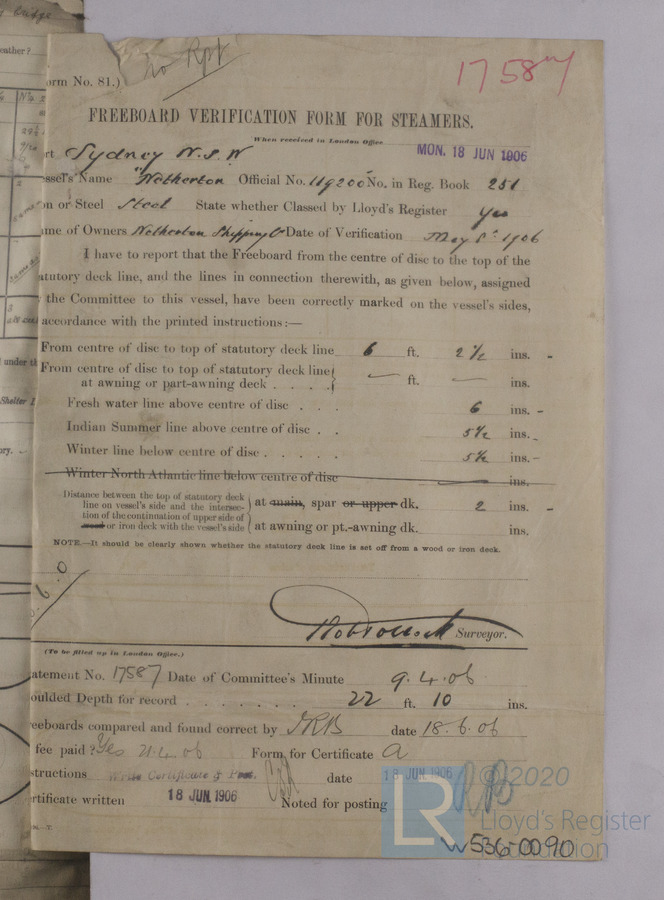 No Rpt
orm No. 81.)
17587
FREEBOARD VERIFICATION FORM FOR STEAMERS.
When received in London Office
MON. 18 JUN 1906
rt Sydney N.S.W
essel's Name "Netherton Official No. 119200 No. in Reg. Book 251
on or Steel Steel State whether Classed by Lloyd's Register Yes
me of Owners Netherton Shipping Co Date of Verification May 8th 1906
I have to report that the Freeboard from the centre of disc to the top of the
atutory deck line, and the lines in connection therewith, as given below, assigned
the Committee to this vessel, have been correctly marked on the vessel's sides,
accordance with the printed instructions:—
From centre of disc to top of statutory deck line 6 ft. 2 1/2 ins.
From centre of disc to top of statutory deck line
at awning or part-awning deck . . . . — ft. — ins.
Fresh water line above centre of disc . . . 6 ins.
Indian Summer line above centre of disc . . 5 1/2 ins.
Winter line below centre of disc . . . . . 5 1/2 ins.
Winter North Atlantic line below centre of disc — ins.
Distance between the top of statutory deck
line on vessel's side and the intersec-
tion of the continuation of upper side of
or iron deck with the vessel's side
at main, spar or upper dk. 2 ins.
at awning or pt.-awning dk. ins.
NOTE.—It should be clearly shown whether the statutory deck line is set off from a wood or iron deck.
Surveyor.
(To be filled up in London Office.)
atement No. 17587 Date of Committee's Minute 9.4.06
oulded Depth for record . . . . . . . 22 ft. 10 ins.
reeboards compared and found correct by date 18.6.06
fee paid? Yes 21.4.06 Form for Certificate A
structions Write Certificate & Post. date 18 JUN 1906
rtificate written 18 JUN. 1906 Noted for posting
© 2020
LR Lloyd's Register
Foundation
W536-0090